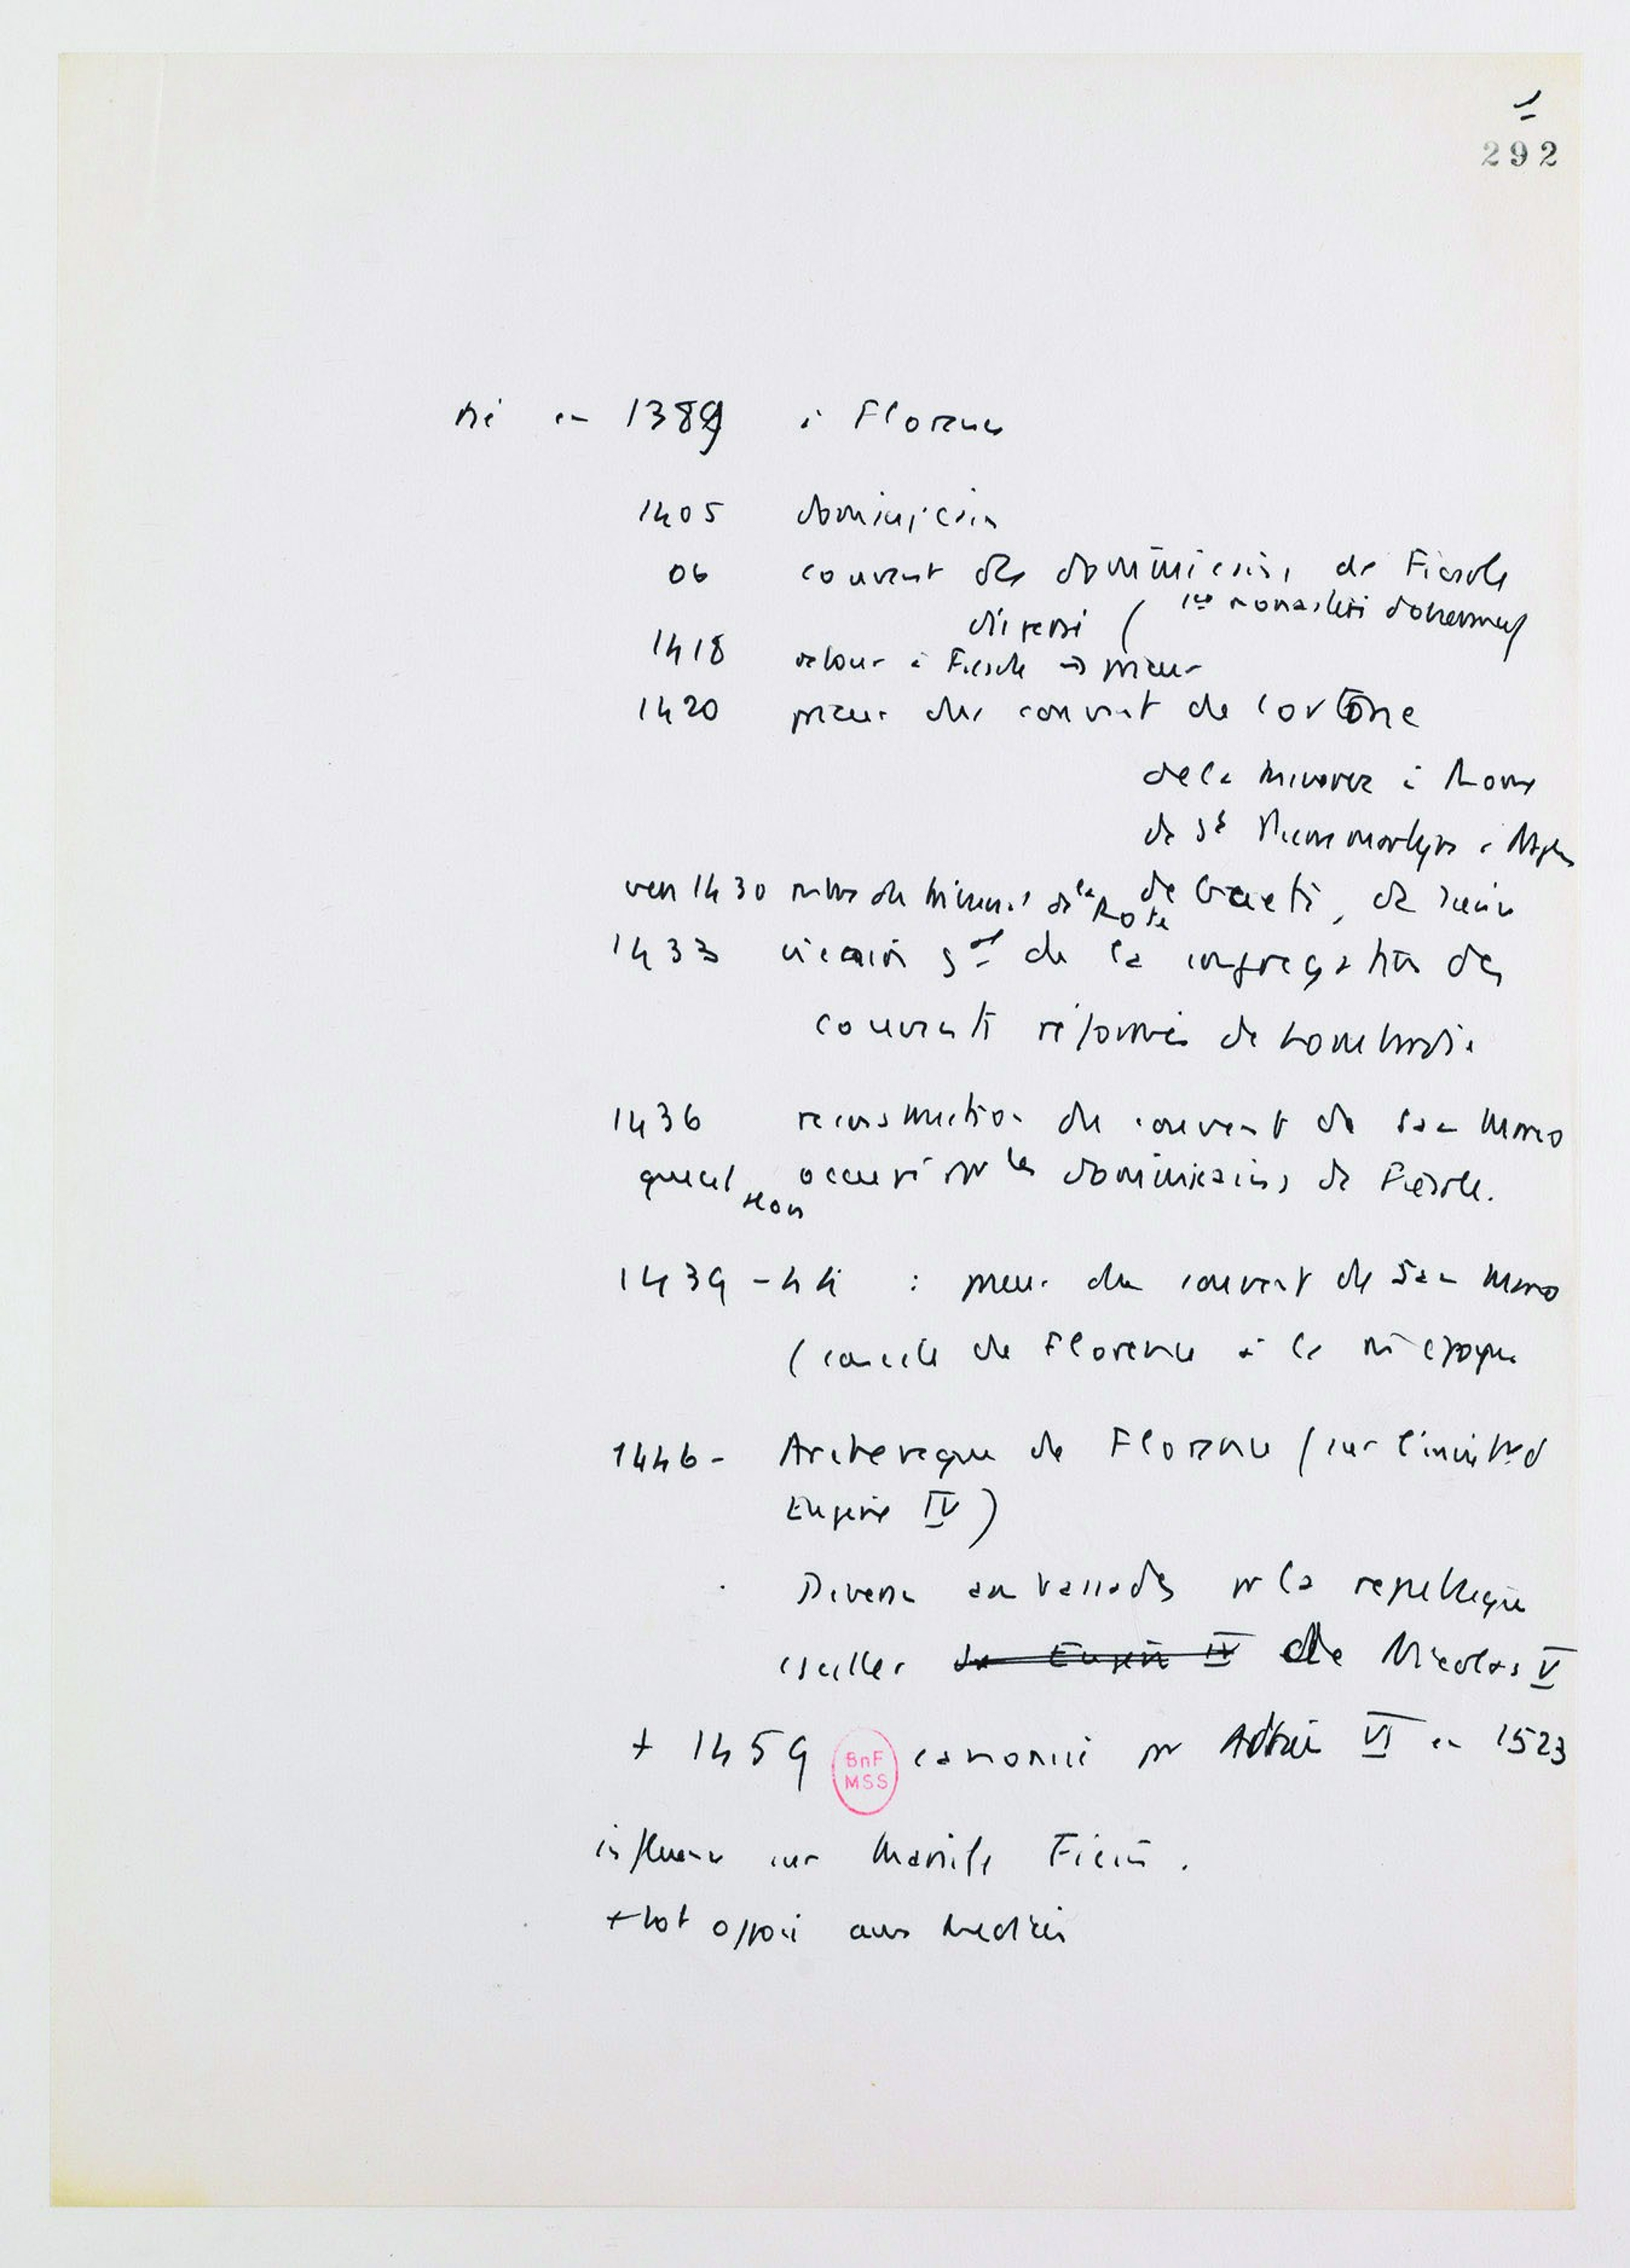 1
292
né en 1389 à Florence
1405 dominicain
06 couvent des dominicains de Fiesole
dispersé ( 1er
1418 retour à Fiesole → prieur
1420 prieur du couvent de Cortone
de la Minerve à Rome
de St Pierre martyr à Naples
vers 1430 de la Rote de Gaete, de Sienne
1433 vicaire gal de la congregation des
couvents réformés de Lombardie
1436 reconstruction du couvent de San Marco
occupé par les dominicains de Fiesole.
1439-44 : prieur du couvent de San Marco
(concile de Florence à la m̂ époque
1446 - Archeveque de Florence (sur l'
Eugène IV)
Diverses ambassades pr la republique
cseiller de Eugène IV de Nicolas V
+ 1459 BnF MSS canonisé par Adrien VI en 1523
influence sur Marsile Ficin.
+tot opposé aux Medicis